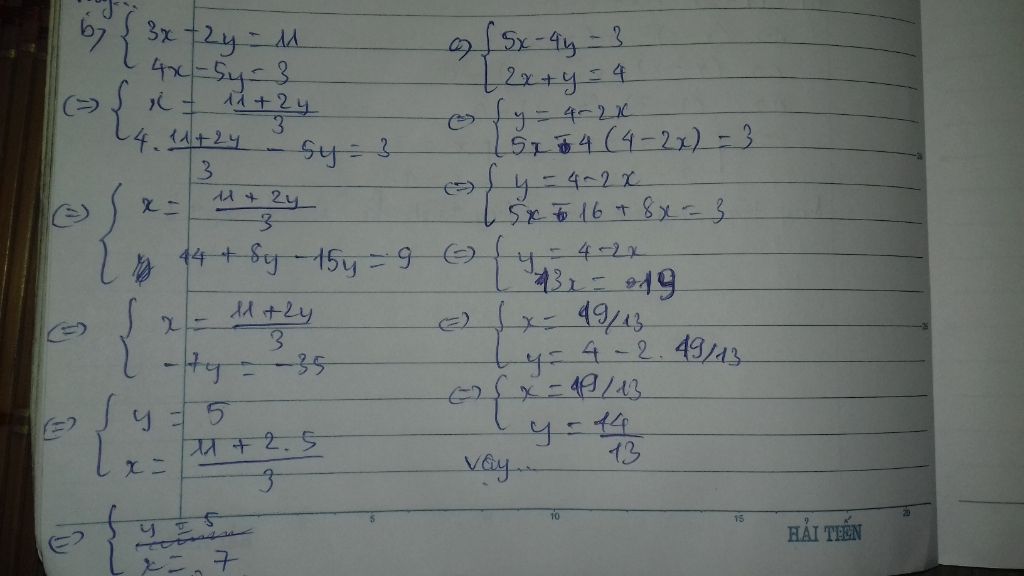 b) { 3x - 2y = 11
4x - 5y = 3
(=) { x = 11 + 2y / 3
4 . 11 + 2y / 3 - 5y = 3
(=) { x = 11 + 2y / 3
44 + 8y - 15y = 9
(=) { x = 11 + 2y / 3
-7y = -35
(=) { y = 5
x = 11 + 2 . 5 / 3
(=) { y = 5
x = 7
c) { 5x - 4y = 3
2x + y = 4
(=) { y = 4 - 2x
5x - 4 (4 - 2x) = 3
(=) { y = 4 - 2x
5x - 16 + 8x = 3
(=) { y = 4 - 2x
13x = 19
(=) { x = 19/13
y = 4 - 2 . 19/13
(=) { x = 19/13
y = 14 / 13
Vậy...
5 10 15 20
HẢI TIẾN